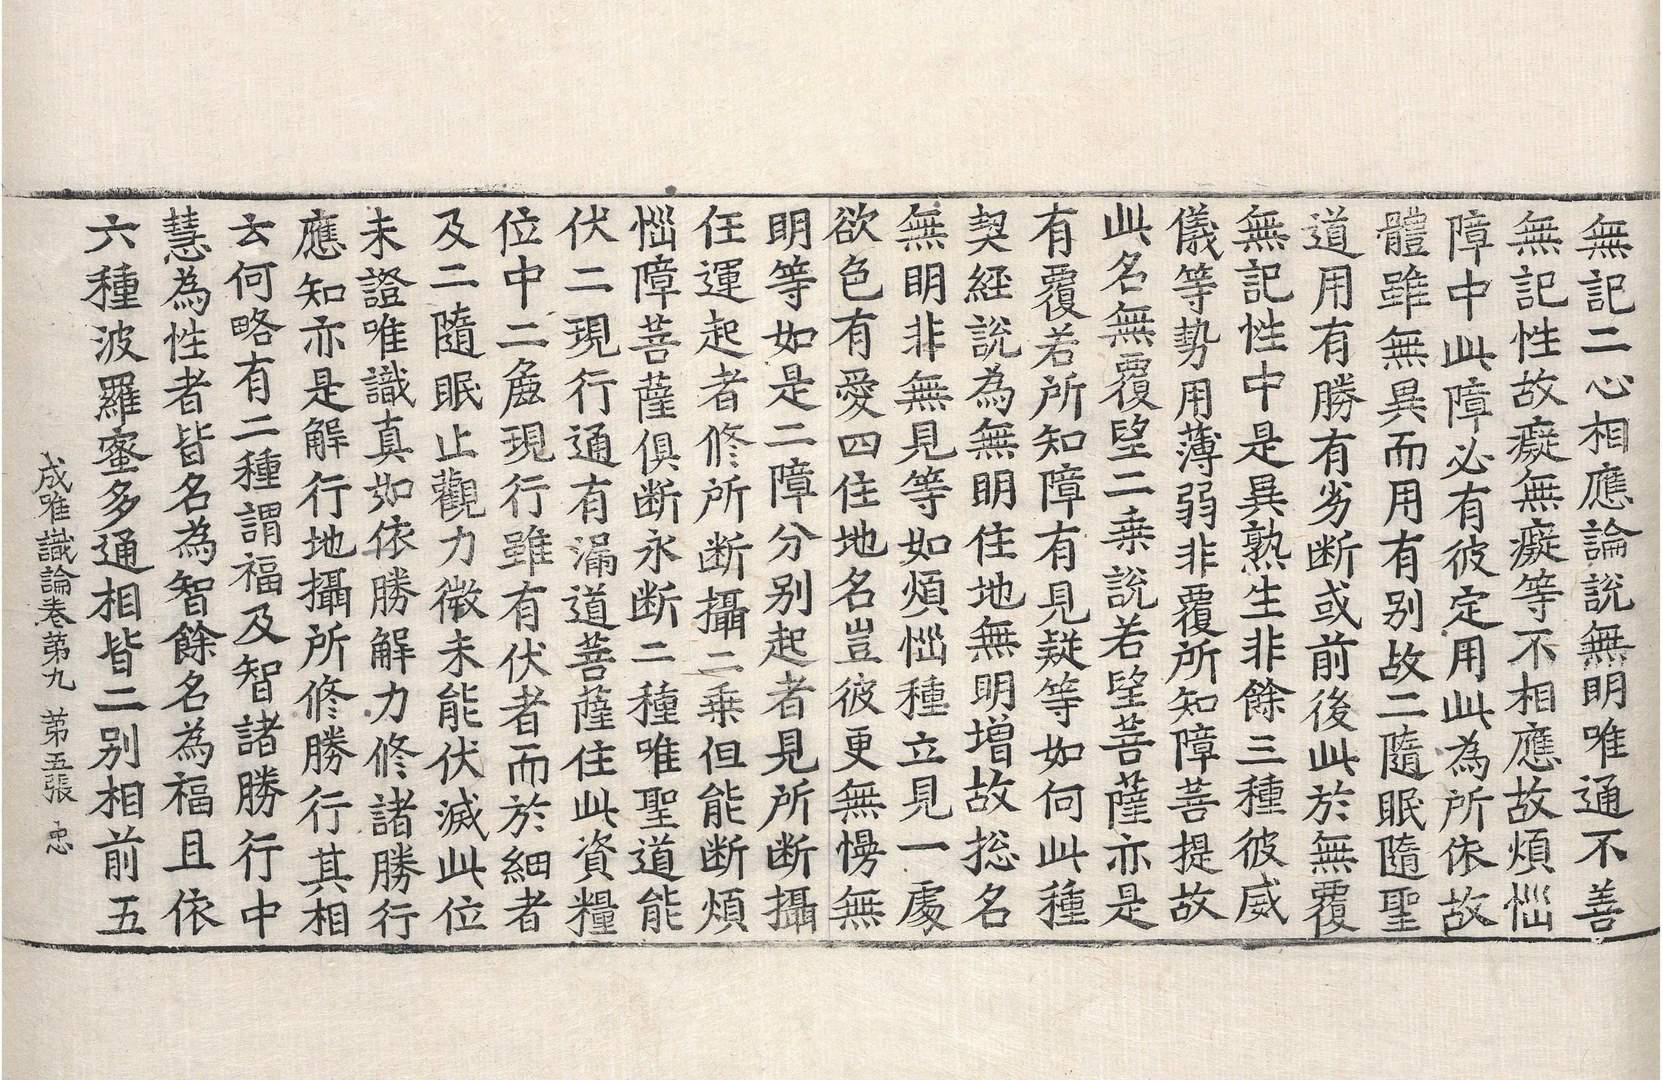 無記二心相應論說無明唯通不善
無記性故癡無癡等不相應故煩惱
障中此障必有彼定用此為所依故
體雖無異而用有別故二隨眠隨聖
道用有勝有劣斷或前後此於無覆
無記性中是異熟生非餘三種彼威
儀等勢用薄弱非覆所知障菩提故
此名無覆望二乗說若望菩薩亦是
有覆若所知障有見疑等如何此種
契経說為無明住地無明增故捴名
無明非無見等如煩惱種立見一處
欲色有愛四住地名豈彼更無慢無
明等如是二障分別起者見所断攝
任運起者修所断攝二乗但能断煩
惱障菩薩俱断永断二種唯聖道能
伏二現行通有漏道菩薩住此資糧
位中二麁現行雖有伏者而於細者
及二隨眠止觀力微未能伏滅此位
未證唯識真如依勝解力修諸勝行
應知亦是解行地攝所修勝行其相
云何略有二種謂福及智諸勝行中
慧為性者皆名為智餘名為福且依
六種波羅蜜多通相皆二別相前五
成唯識論卷第九　第五張　忠